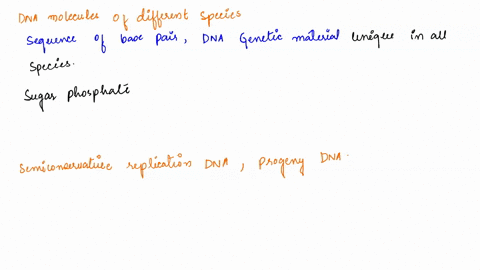 DNA molecules of different species
Sequence of base pair, DNA Genetic material unique in all
species.
Sugar phosphate
Semiconservative replication DNA, Progeny DNA.